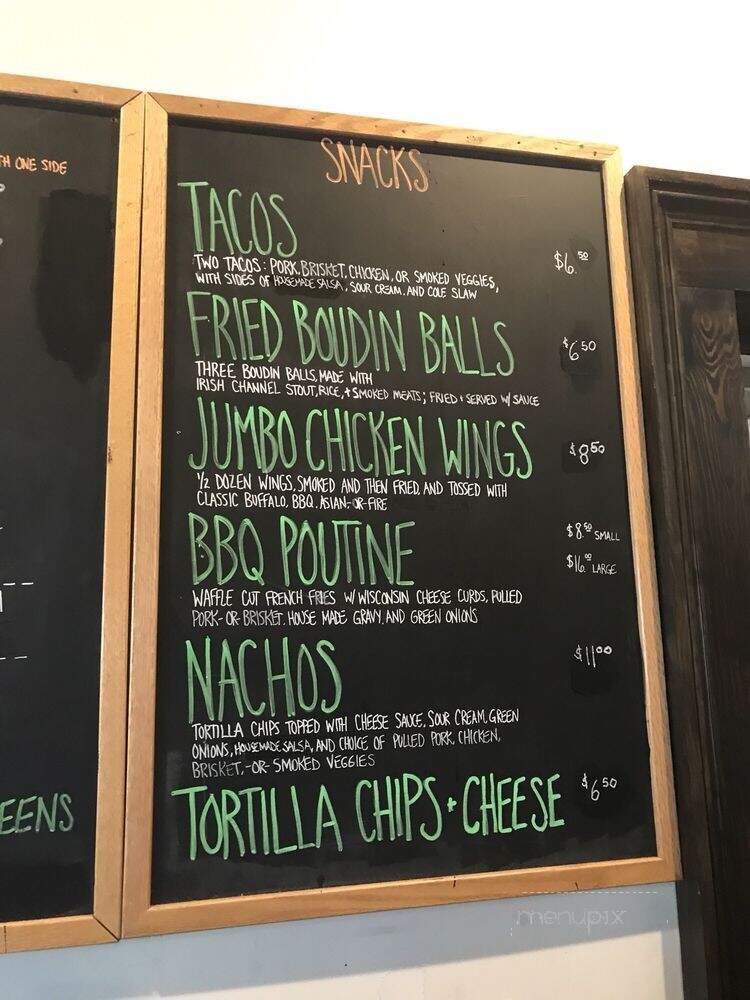 TH ONE SIDE
EENS
SNACKS
TACOS
$6.50
TWO TACOS: PORK, BRISKET, CHICKEN, OR SMOKED VEGGIES,
WITH SIDES OF HOUSEMADE SALSA, SOUR CREAM, AND COLE SLAW
FRIED BOUDIN BALLS
$6 50
THREE BOUDIN BALLS, MADE WITH
IRISH CHANNEL STOUT, RICE, + SMOKED MEATS; FRIED + SERVED W/ SAUCE
JUMBO CHICKEN WINGS
$8 50
1/2 DOZEN WINGS, SMOKED AND THEN FRIED, AND TOSSED WITH
CLASSIC BUFFALO, BBQ, ASIAN,-OR-FIRE
BBQ POUTINE
$8.50 SMALL
$16.00 LARGE
WAFFLE CUT FRENCH FRIES W/ WISCONSIN CHEESE CURDS, PULLED
PORK-OR-BRISKET, HOUSE MADE GRAVY, AND GREEN ONIONS
NACHOS
$11 00
TORTILLA CHIPS TOPPED WITH CHEESE SAUCE, SOUR CREAM, GREEN
ONIONS, HOUSEMADE SALSA, AND CHOICE OF PULLED PORK, CHICKEN,
BRISKET,-OR-SMOKED VEGGIES
TORTILLA CHIPS + CHEESE
$6 50
menupix